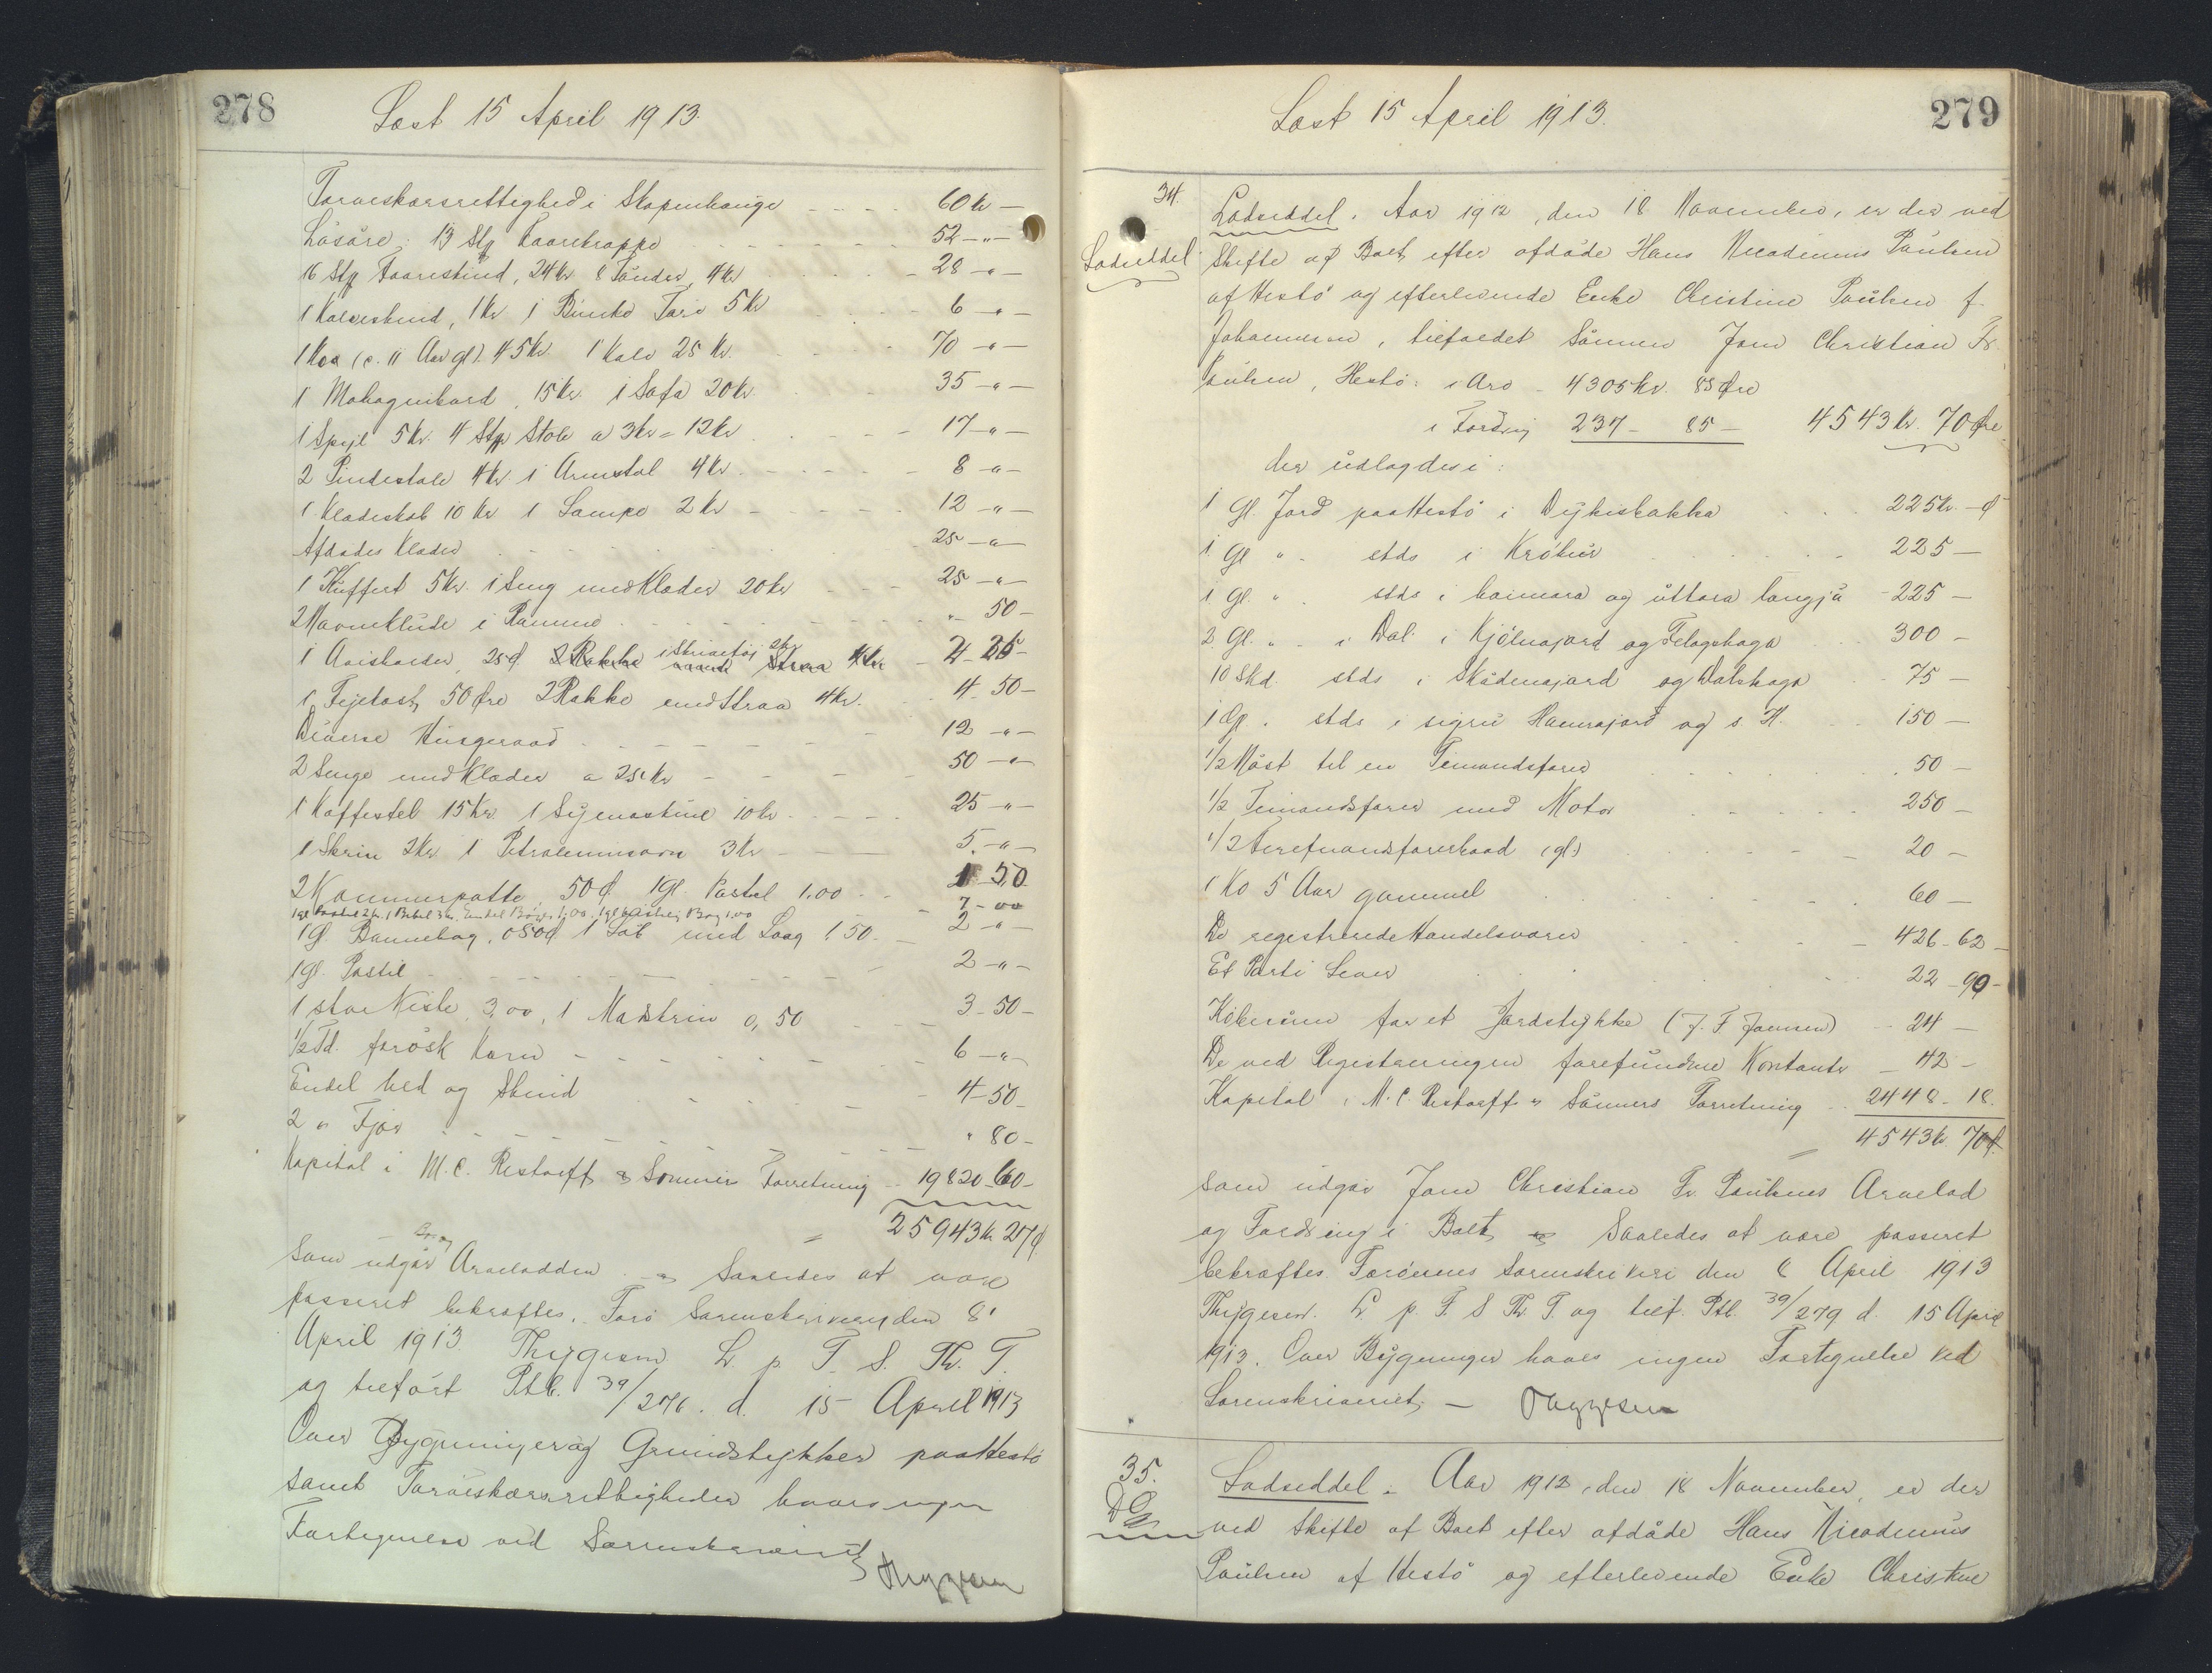 278
Læst 15 April 1913.
Torveskærsrettighed i Stapenhauge 60 kr —
Løsøre: 13 Stk Faarekroppe 52 — " —
16 Stk Faareskind, 24 kr 8 Tønder, 4 kr 28 — " —
1 Kalveskind, 1 kr 1 Tørv 5 kr 6 — " —
1 Ko (c. 11 Aar gl). 45 kr 1 Kalv 25 kr. 70 — " —
1 Mahognibord, 15 kr 1 Sofa 20 kr 35 — " —
1 Spejl 5 kr. 4 Stk Stole a 3 kr = 12 kr 17 — " —
2 Pindestole 4 kr 1 Armstol 4 kr. 8 — " —
1 Klædeskab 10 kr 1 Lampe 2 kr 12 — " —
Afdødes Klæder 25 — " —
1 Kuffert 5 kr. 1 Seng med Klæder 20 kr 25 — " —
2 Navneklude i Ramme " 50 —
1 Avisholder, 25 Ø. 2 Rokke 1 Skrivetøj 2 kr Straa 4 kr 2 25 —
1 Fejekost, 50 Øre 2 Rokke med Straa 4 kr. 4. 50 —
Diverse Husgeraad 12 — " —
2 Senge med Klæder a 25 kr 50 — " —
1 Kaffestel 15 kr. 1 Symaskine 10 kr 25 — " —
1 Skrin 2 kr 1 Petroleumsovn 3 kr 5. — " —
2 Kammerpotte 50 Ø. 1 gl. Postil 1.00 1 50
1 gl Postil 2 kr. 1 Bibel 3 kr. Endel Bøger 1,00. 1 gl Bog 1.00 7 — 00
1 gl. Bannebog, 0 50 Ø 1 Løb med Laag 1.50. 2 — " —
1 gl. Postil 2 — " —
1 stor Kiste, 3,00, 1 Madskrin 0,50 3 — 50 —
1/2 Td. færøsk Korn 6 — " —
Endel Uld og Skind 4 — 50 —
2 " Fjer " 80 —
Kapital i M. C. Restorff & Sønners Forretning 19820 — 60 —
= 25943 kr 27 Ø.
som udgør Bo og Arvelodden. — Saaledes at være
passeret bekræftes. Færø Sorenskriveri den 8'
April 1913. Thygesen L. p. T. S. Th. T.
og tilført Ptb. 39/276. d. 15 April 1913
Over Bygninger og Grundstykker paa Hestø
samt Torveskærsrettigheder haves ingen
Fortegnelse ved Sorenskriveriet
Thygesen
279
Læst 15 April 1913.
34.
Lodseddel
Lodseddel. Aar 1912, den 18 November, er der ved
Skifte af Boet efter afdøde Hans Nicodemus Paulsen
af Hestø og efterlevende Enke Christine Paulsen f.
Johannesen, tilfaldet Sønnen Jens Christian Fr.
Paulsen, Hestø: i Arv — 4305 kr. 85 Øre
i Fordring 237 — 85 — 4543 kr. 70 Øre
der udlagdes i:
1 Gl. Jord paa Hestø i Dykisbakka 225 kr. — Ø
1 Gl " stds i Krókur 225 —
1 Gl. " stds i heimara og úttara langjá 225 —
2 Gl. " i Dal i Kjølnajord og Felagshaga 300 —
10 Skd. stds i Skødinajord og Dalshaga 75 —
1 Gl. stds i signu Hamrajord og s. H. 150 —
1/2 Nøst til en Timandsfarer 50 —
1/2 Timandsfarer med Motor 250 —
1/2 Firemandsfarerbaad (gl.) 20 —
1 Ko 5 Aar gammel 60 —
De registrerede Handelsvarer 426 — 62 —
Et Parti Lever 22 — 90 —
Købesum for et Jordstykke (J. F. Joensen) 24 —
De ved Registreringen forefundne Kontanter 42 —
Kapital i M. C. Restorff & Sønners Forretning 2448 — 18.
= 4543 kr 70 Ø.
som udgør Jens Christian Fr. Paulsens Arvelod
og Fordring i Boet — Saaledes at være passeret
bekræftes Færøernes Sorenskriveri den 8 April 1913
Thygesen. L. p. T. S Th T. og tilf. Ptb. 39/279 d. 15 April
1913. Over Bygninger haves ingen Fortegnelse ved
Sorenskriveriet. — Thygesen
35.
DO
Lodseddel. Aar 1912, den 18 November, er der
ved Skifte af Boet efter afdøde Hans Nicodemus
Paulsen af Hestø og efterlevende Enke Christine